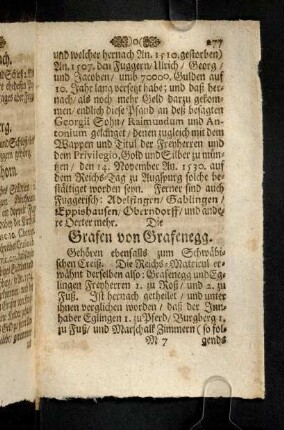 277
und welcher hernach An. 1510. gestorben)
An. 1507. den Fuggern / Ulrich / Georg /
und Jacoben / umb 70000. Gulden auf
10. Jahr lang versetzt habe; und daß her-
nach / als noch mehr Geld darzu gekom-
men / endlich diese Pfand an deß besagten
Georgii Sohn / Raimundum und An-
tonium gelanget / denen zugleich mit dem
Wappen und Titul der Freyherren und
dem Privilegio, Gold und Silber zu mün-
tzen / den 14. November An. 1530. auf
dem Reichs-Tag zu Augspurg solche be-
stättiget worden seyn. Ferner sind auch
Fuggerisch: Adelsingen / Gablingen /
Eppishausen / Oberndorff / und ande-
re Oerter mehr. Die
Grafen von Grafenegg.
Gehören ebenfalls zum Schwäbi-
schen Creiß. Die Reichs-Matricul er-
wähnt derselben also: Grafenegg und Eg-
lingen Freyherren 1. zu Roß / und 2. zu
Fuß. Ist hernach getheilet / und unter
ihnen verglichen worden / daß der Inn-
haber Eglingen 1. zu Pferd / Burgberg 1.
zu Fuß / und Marschalk Zimmern (so fol-
M 7 gends